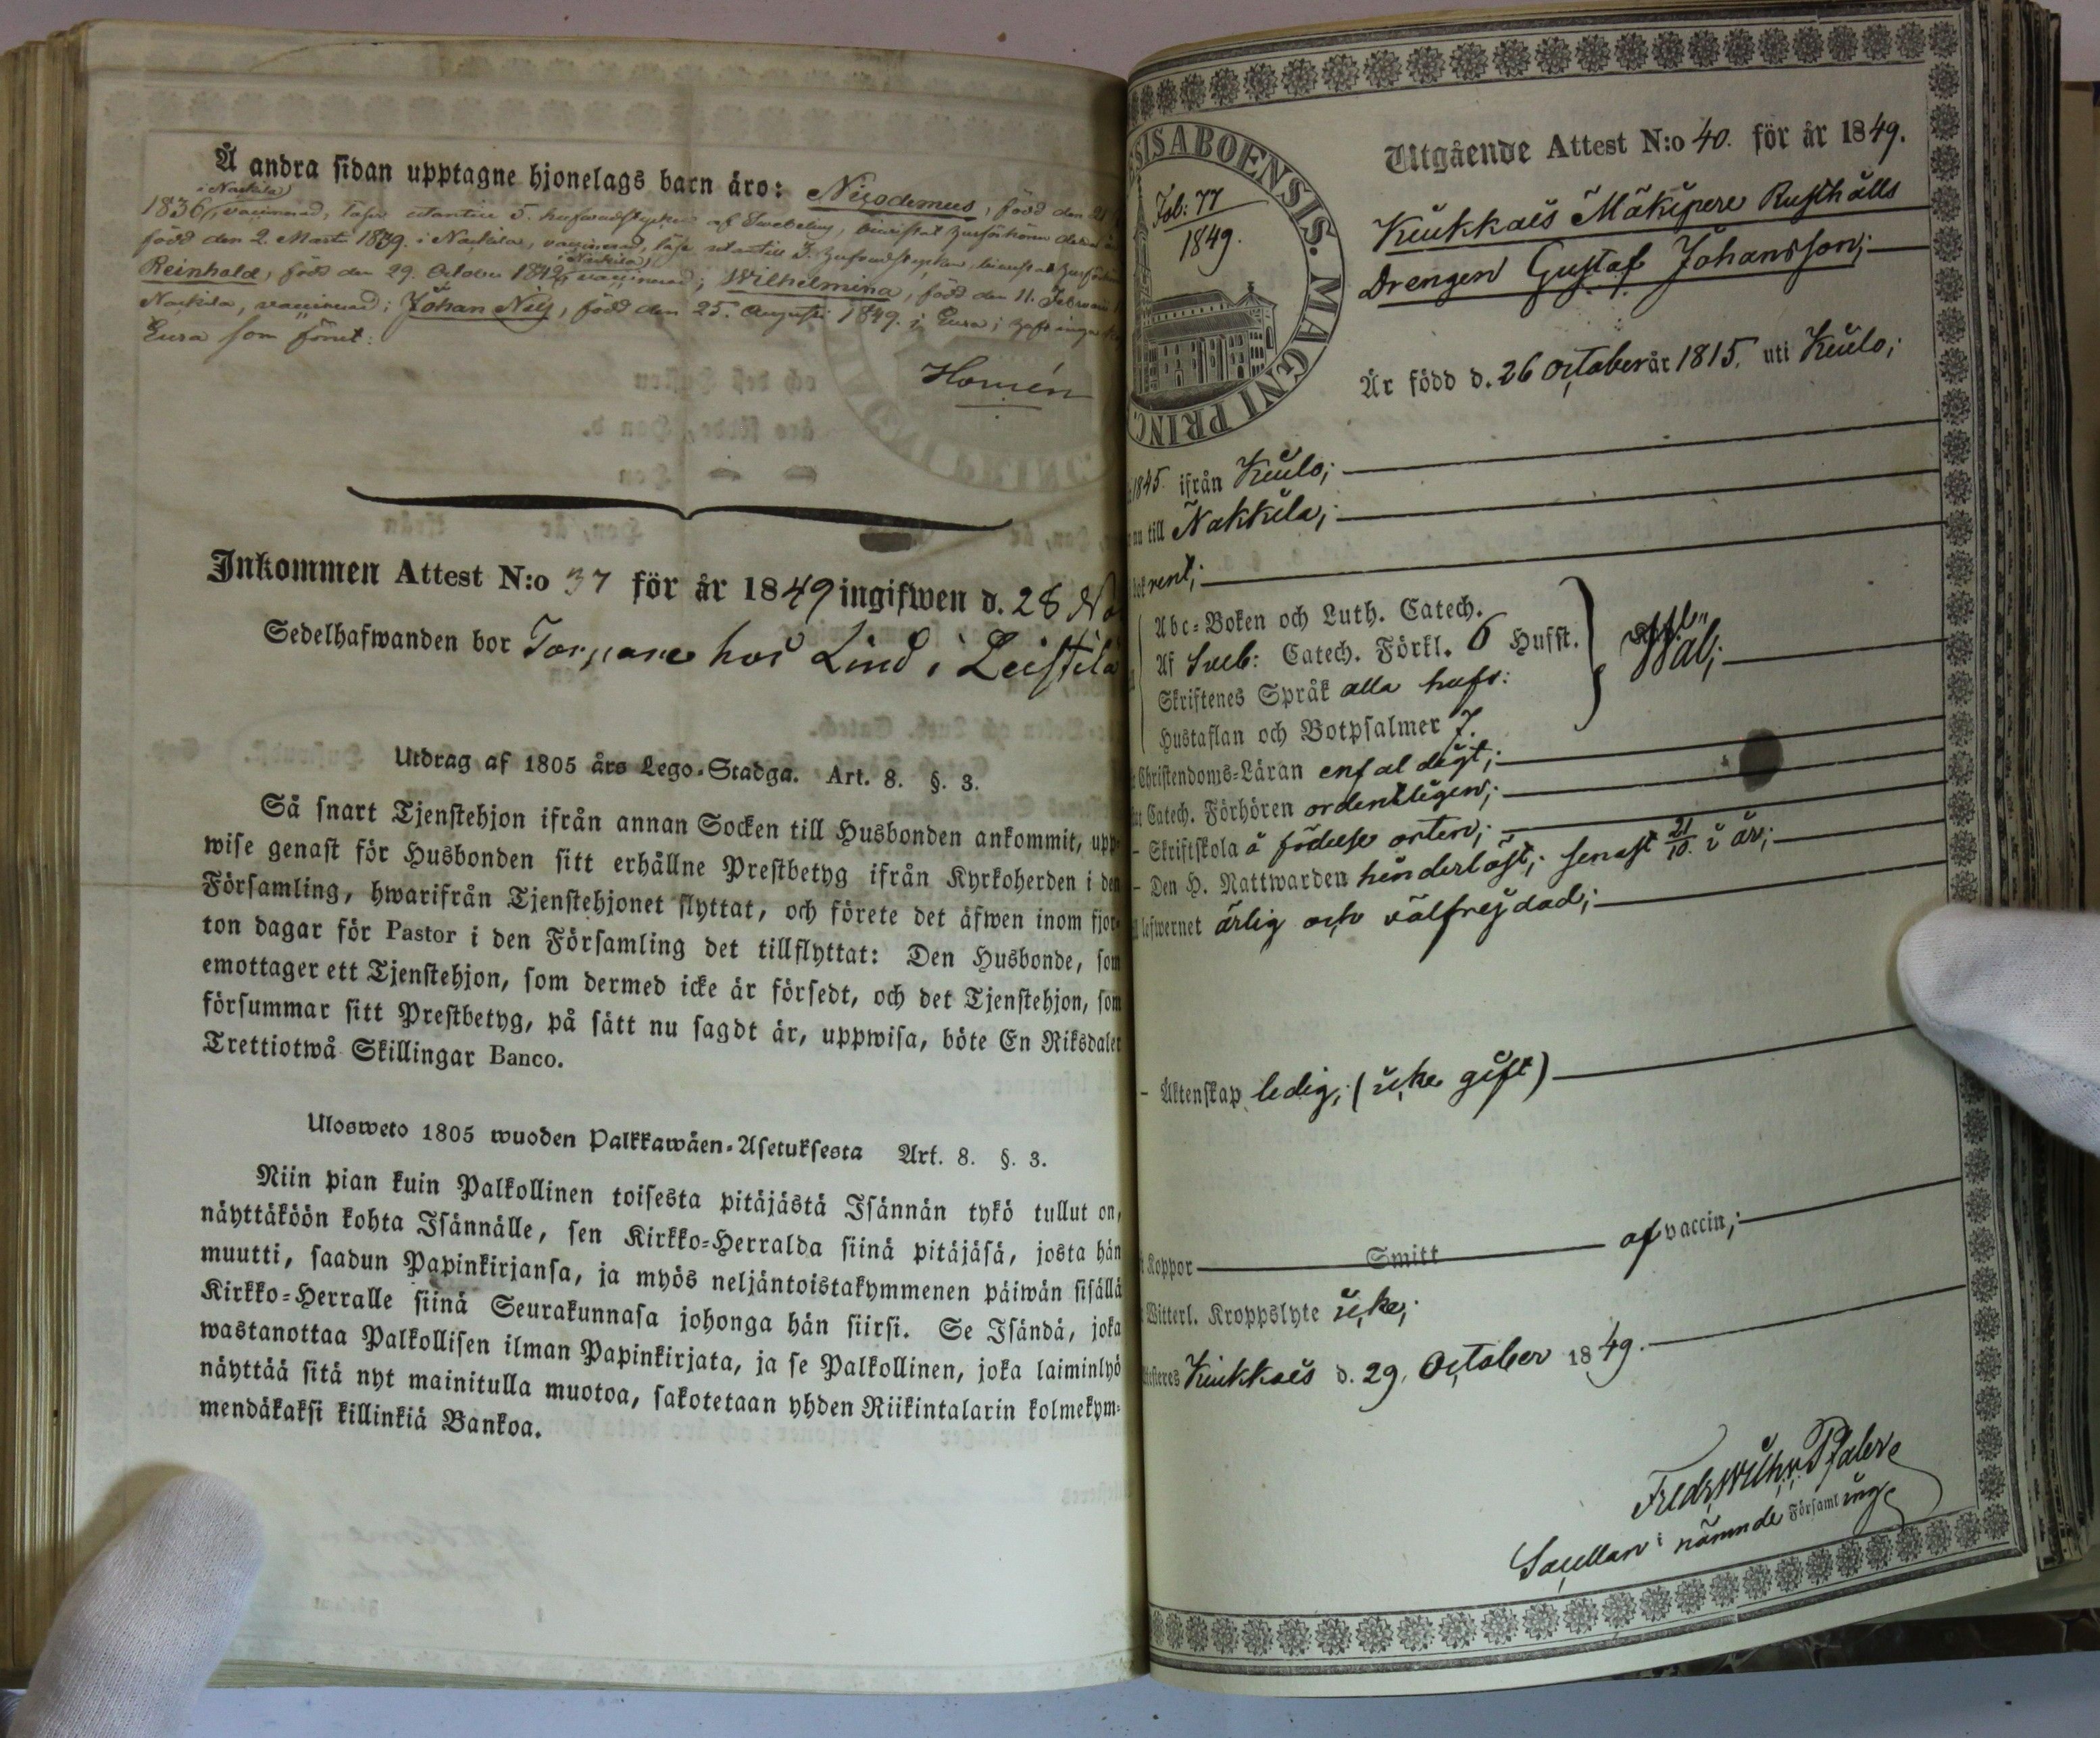 Å andra sidan upptagne hjonelags barn äro: Nicodemus, född den 21
i Nackila
1836, vaccinerad, läser utantill 5. hufvudstycken af Swebelius, bevistat
född den 2. Martii 1839. i Nackila, vaccinerad, läser utantill 3. hufvudstycken, bevistat
i Nackila
Reinhold, född den 29. October 1842, vaccinerad; Wilhelmina, född den 11. Februarii
Nackila, vaccinerad; Johan Nils, född den 25. Augusti 1849. i Eura; haft inga
Eura som förut.
Homén
Inkommen Attest N:o 37 för år 1849 ingifwen d. 28 No
Sedelhafwanden bor Torpare hos Lind i Leistilä
Utdrag af 1805 års Lego-Stadga. Art. 8. §. 3.
Så snart Tjenstehjon ifrån annan Socken till Husbonden ankommit, upp-
wise genast för Husbonden sitt erhållne Prestbetyg ifrån Kyrkoherden i den
Församling, hwarifrån Tjenstehjonet flyttat, och förete det äfwen inom fjor-
ton dagar för Pastor i den Församling det tillflyttat: Den Husbonde, som
emottager ett Tjenstehjon, som dermed icke är försedt, och det Tjenstehjon, som
försummar sitt Prestbetyg, på sätt nu sagdt är, uppwisa, böte En Riksdaler
Trettiotwå Skillingar Banco.
Ulosweto 1805 wuoden Palkkawäen-Asetuksesta Art. 8. §. 3.
Niin pian kuin Palkollinen toisesta pitäjästä Isännän tykö tullut on,
näyttäköön kohta Isännälle, sen Kirkko-Herralda siinä pitäjäsä, josta hän
muutti, saadun Papinkirjansa, ja myös neljäntoistakymmenen päiwän sisällä
Kirkko-Herralle siinä Seurakunnasa johonga hän siirsi. Se Isändä, joka
wastanottaa Palkollisen ilman Papinkirjata, ja se Palkollinen, joka laiminlyö
näyttää sitä nyt mainitulla muotoa, sakotetaan yhden Riikintalarin kolmekym-
mendäkaksi killinkiä Bankoa.
SIS ABOENSIS. MAGNI PRINC.
Fol: 77
1849.
Utgående Attest N:o 40. för år 1849.
Kiukkais Mäkipere Rusthålls
Drengen Gustaf Johansson;
Är född d. 26 October år 1815. uti Kiulo;
1845. ifrån Kiulo;
nu till Nakkila;
rent;
Abc-Boken och Luth. Catech.
Af Sveb: Catech. Förkl. 6 Husst.
Skriftenes Språk alla hufs:
Hustaflan och Botpsalmer 7.
Christendoms-Läran enfaldigt;
Catech. Förhören ordentligen;
- Skriftskola å födelse orten;
- Den H. Nattwarden hinderlöst; senast 21/10. i år;
lefwernet ärlig och välfrejdad;
- Äktenskap ledig; (icke gift)
Koppor Smitt af vaccin;
Witterl. Kroppslyte icke;
Kiukkais d. 29. October 1849.
Fredr. Wilh. v. Pfaler
Sacellan i nämnde Församling